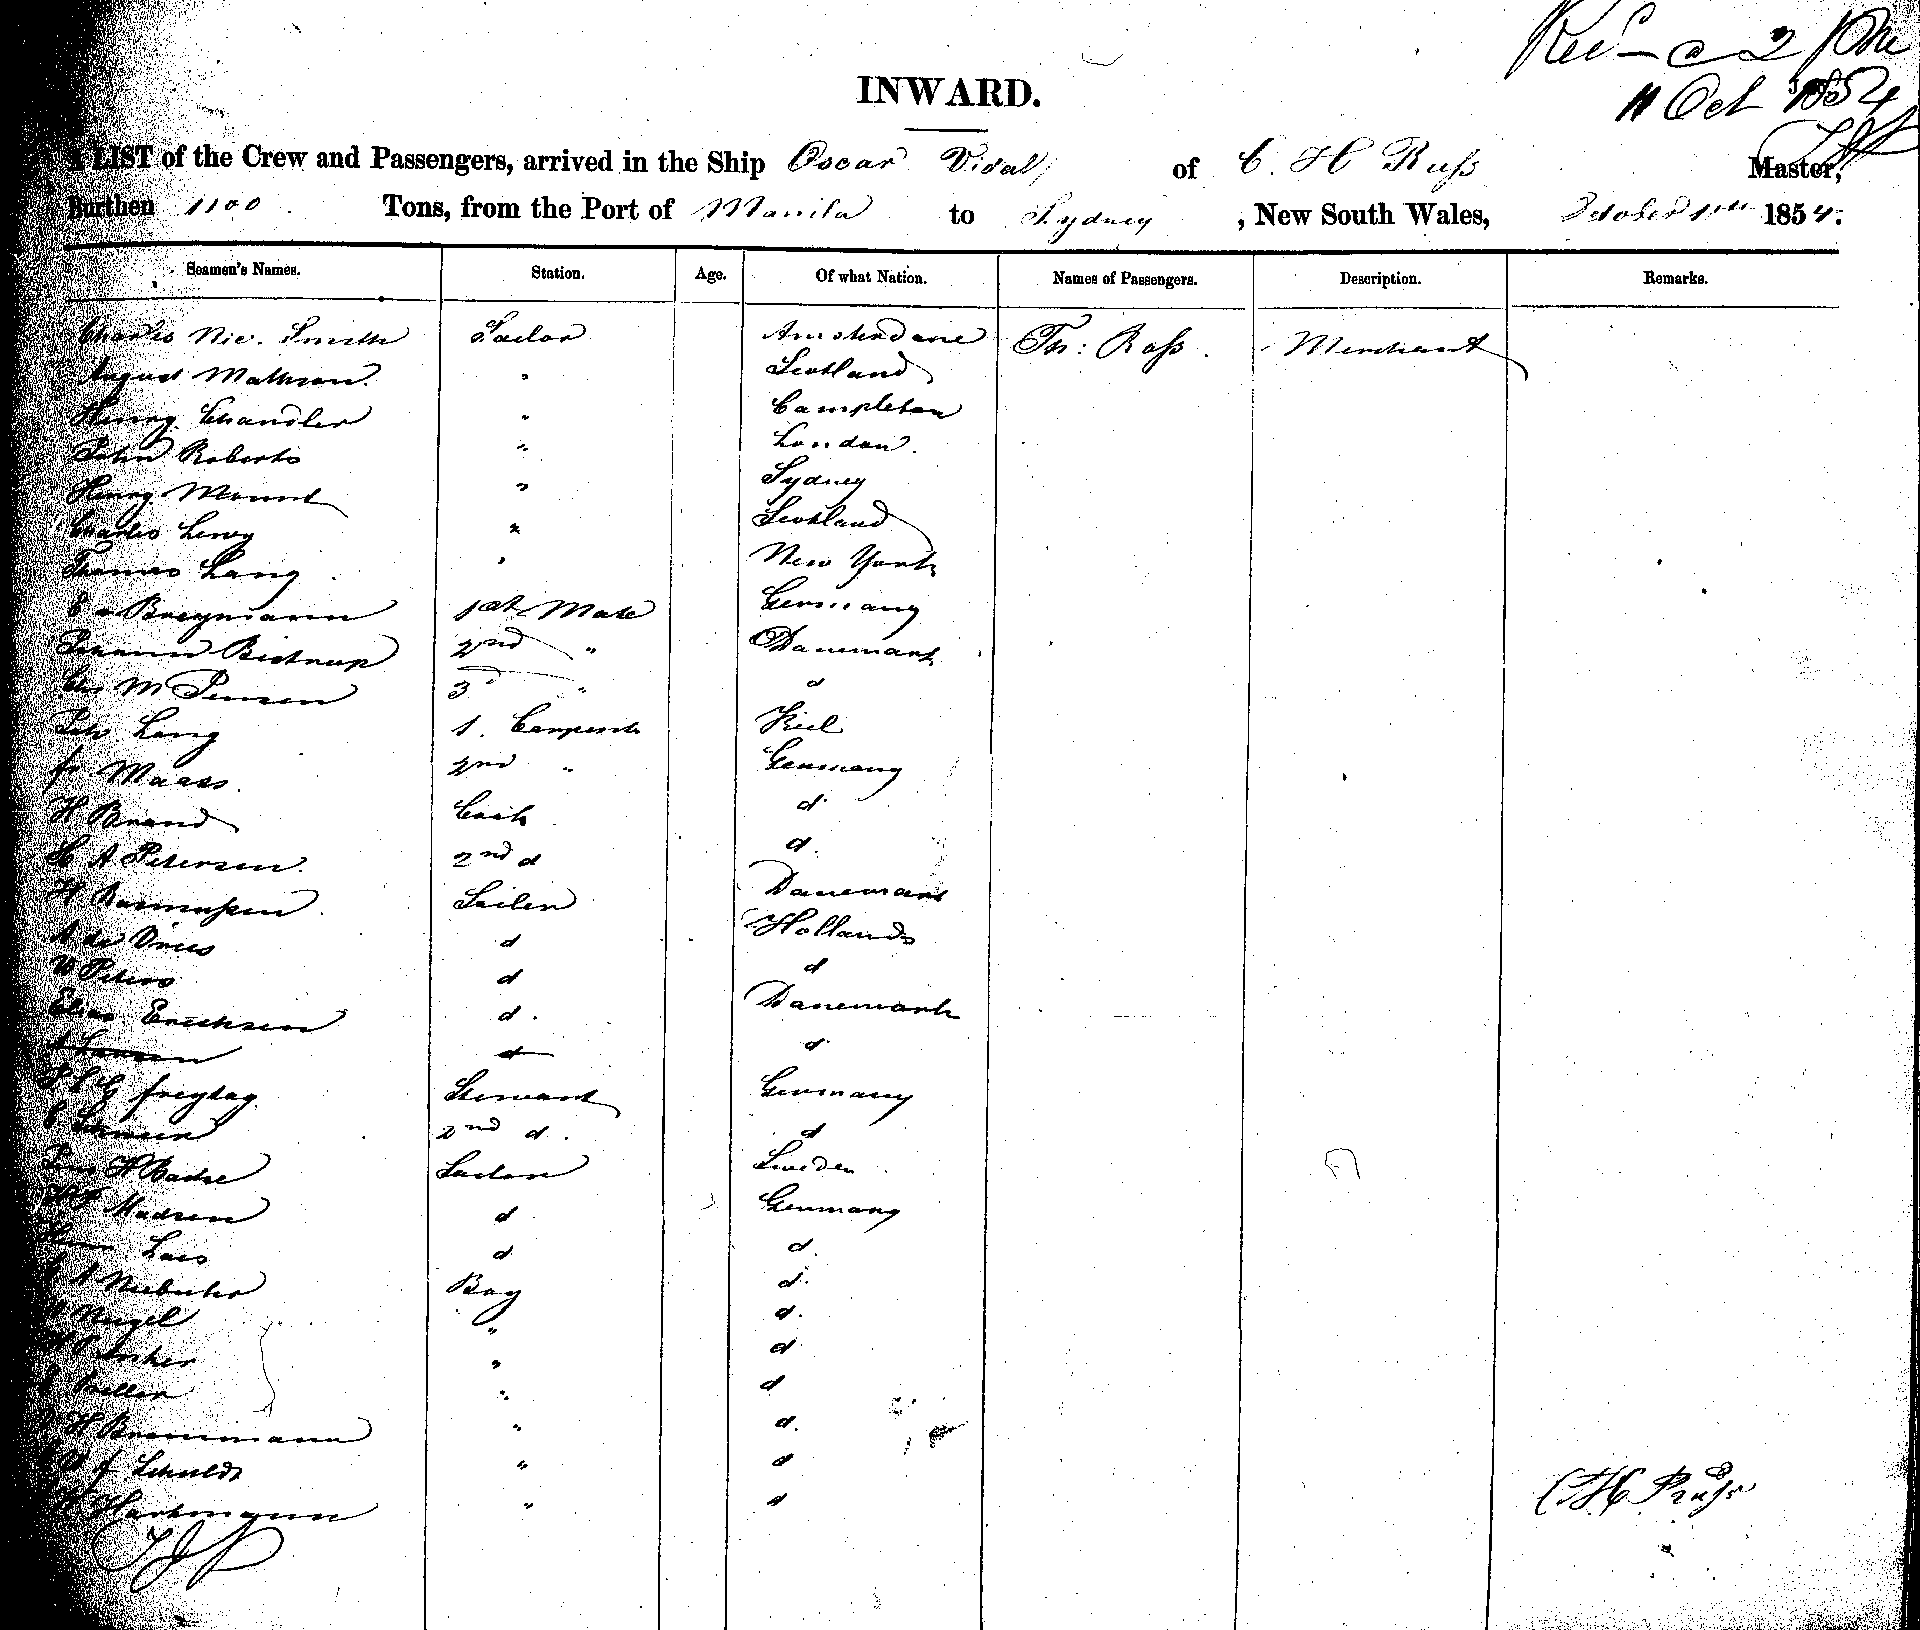 Rec'd 2 PM
11 Oct 1854
INWARD.
A LIST of the Crew and Passengers, arrived in the Ship Oscar Vidal, of C. H Ruß Master,
Burthen 1100 Tons, from the Port of Manila to Sydney, New South Wales, October 1854.
Seamen's Names. Station. Age. Of what Nation. Names of Passengers. Description. Remarks.
Charles Nic. Smith Sailor Amsterdam Th: Roß. Merchant
August Mathson. " Scotland
Henry Chandler " Campleton
John Roberts " London.
Henry Mount " Sydney
Charles Levey " Scotland
Thomas Lang " New York
Breymann 1st Mate Germany
Bistrup 2nd " Danemark
M Jensen 3d " d
Lang 1. Carpent Kiel
fr Maass. 2nd " Germany
H Brand Cook d
A Petersen. 2nd d d.
H Rasmußen Sailor Danemark
A de Vries d Holland
Peters d d
Erichsen d. Danemark
Larsen d d
freytag. Stewart Germany
2nd d. d
Sailor Sweden
Madsen d Germany
d d.
Niebuhr Boy d.
Nagel " d.
" d
" d
H Bremmann " d.
f Schuldt " d
Hartmann " d
C H Ruß